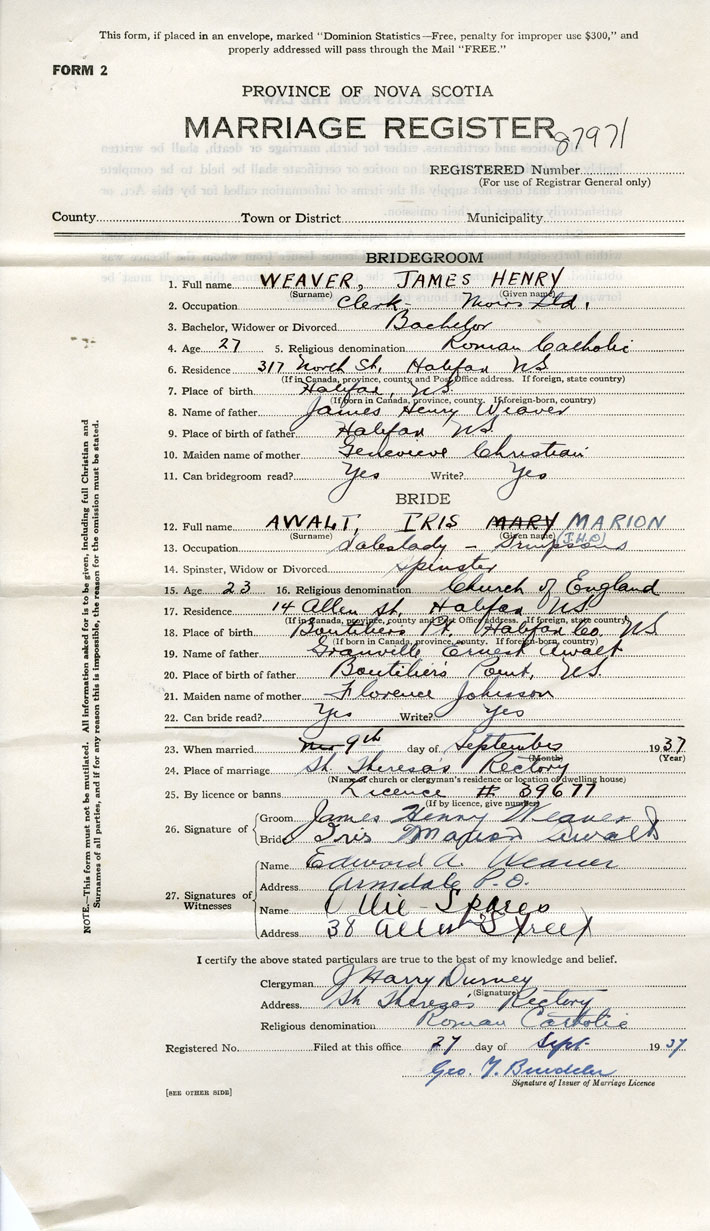 This form, if placed in an envelope, marked "Dominion Statistics—Free, penalty for improper use $300," and
properly addressed will pass through the Mail "FREE."
FORM 2
PROVINCE OF NOVA SCOTIA
MARRIAGE REGISTER
87971
REGISTERED Number
(For use of Registrar General only)
County Town or District Municipality
BRIDEGROOM
1. Full name WEAVER, JAMES HENRY
(Surname) (Given name)
2. Occupation Clerk - Moirs Ltd.
3. Bachelor, Widower or Divorced Bachelor
4. Age 27 5. Religious denomination Roman Catholic
6. Residence 317 North St. Halifax NS
(If in Canada, province, county and Post Office address. If foreign, state country)
7. Place of birth Halifax, NS
(If born in Canada, province, county. If foreign-born, country)
8. Name of father James Henry Weaver
9. Place of birth of father Halifax NS
10. Maiden name of mother Genevieve Christian
11. Can bridegroom read? Yes Write? Yes
BRIDE
12. Full name AWALT, IRIS MARY MARION
(Surname) (Given name)
13. Occupation Saleslady - Simpsons
14. Spinster, Widow or Divorced Spinster
15. Age 23 16. Religious denomination Church of England
17. Residence 14 Allen St. Halifax NS
(If in Canada, province, county and Post Office address. If foreign, state country)
18. Place of birth Boutiliers Pt. Halifax Co. NS
(If born in Canada, province, county. If foreign-born, country)
19. Name of father Granville Ernest Awalt
20. Place of birth of father Boutilier's Point, NS.
21. Maiden name of mother Florence Johnson
22. Can bride read? Yes Write? Yes
23. When married 9th day of September 1937
(Month) (Year)
24. Place of marriage St. Theresa's Rectory
(Name of church or clergyman's residence or location of dwelling house)
25. By licence or banns Licence # 39677
(If by licence, give number)
26. Signature of
Groom James Henry Weaver
Bride Iris Marion Awalt
27. Signatures of Witnesses
Name Edward A. Weaver
Address Armdale P.O.
Name Ollie Spares
Address 38 Allen Street
I certify the above stated particulars are true to the best of my knowledge and belief.
Clergyman J Harry Durney
(Signature)
Address St. Theresa's Rectory
Religious denomination Roman Catholic
Registered No. Filed at this office 27 day of Sept. 1937
Geo. T.
Signature of Issuer of Marriage Licence
[SEE OTHER SIDE]
NOTE.—This form must not be mutilated. All information asked for is to be given, including full Christian and
Surnames of all parties, and if for any reason this is impossible, the reason for the omission must be stated.